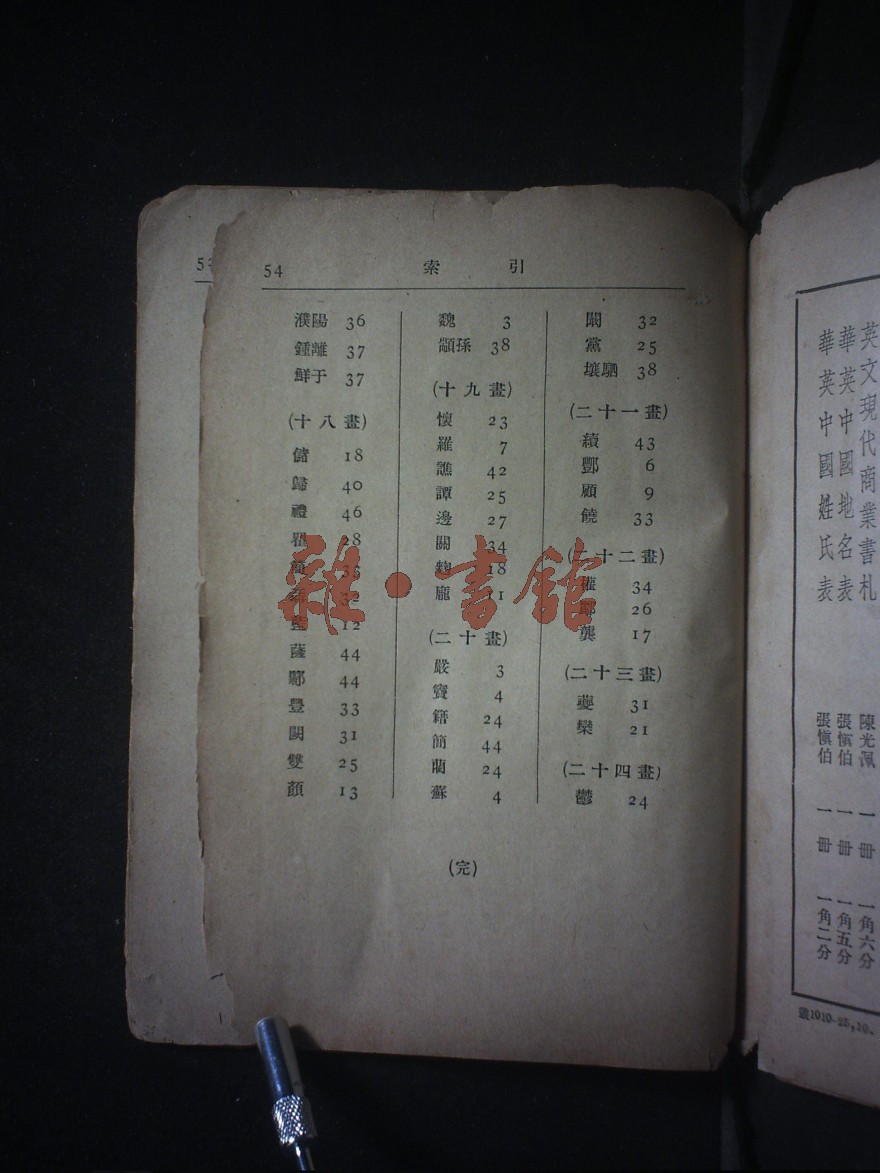 54
索引
濮陽 36
鍾離 37
鮮于 37
(十八畫)
儲 18
歸 40
禮 46
瞿 28
簡 35
32
藍 12
薩 44
鄺 44
豐 33
闕 31
雙 25
顏 13
魏 3
顓孫 38
(十九畫)
懷 23
羅 7
譙 42
譚 25
邊 27
關 34
麴 18
龐 11
(二十畫)
嚴 3
竇 4
籍 24
44
藺 24
蘇 4
闞 32
黨 25
壤駟 38
(二十一畫)
續 43
酆 6
顧 9
饒 33
(二十二畫)
權 34
酈 26
龔 17
(二十三畫)
31
欒 21
(二十四畫)
鬱 24
(完)
雜·書館
英文現代商業書札 陳光佩 一冊 一角六分
華英中國地名表 張愼伯 一冊 一角五分
華英中國姓氏表 張愼伯 一冊 一角二分
叢1010-25,10.